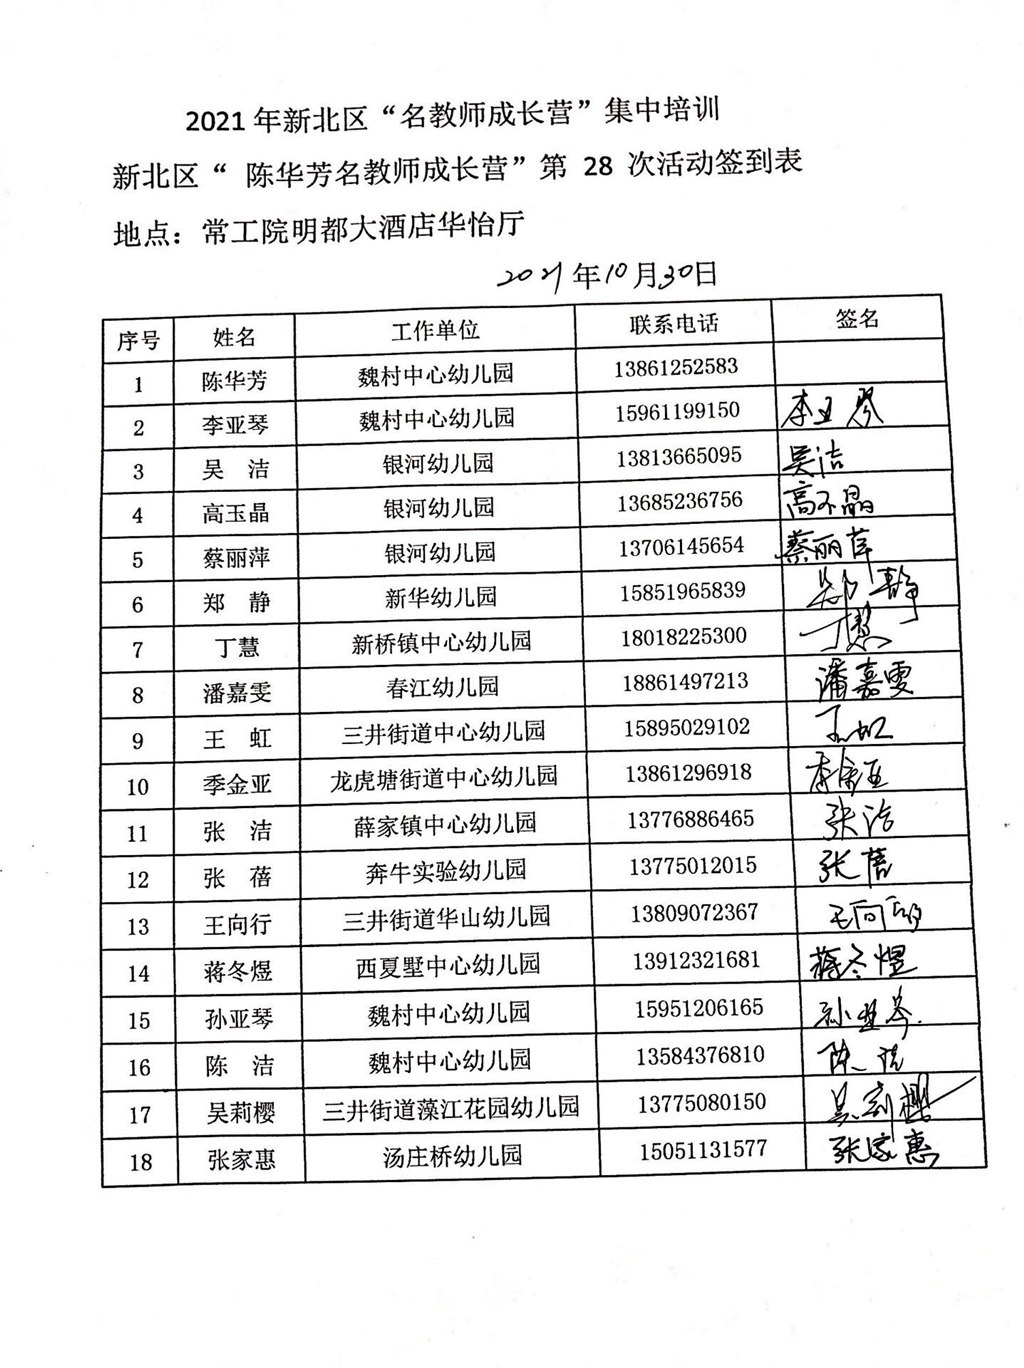 2021 年新北区“名教师成长营”集中培训
新北区“ 陈华芳名教师成长营”第 28 次活动签到表
地点：常工院明都大酒店华怡厅
2021 年 10 月 30 日
序号 姓名 工作单位 联系电话 签名
1 陈华芳 魏村中心幼儿园 13861252583
2 李亚琴 魏村中心幼儿园 15961199150 李亚琴
3 吴 洁 银河幼儿园 13813665095 吴洁
4 高玉晶 银河幼儿园 13685236756 高玉晶
5 蔡丽萍 银河幼儿园 13706145654 蔡丽萍
6 郑 静 新华幼儿园 15851965839 郑静
7 丁慧 新桥镇中心幼儿园 18018225300 丁慧
8 潘嘉雯 春江幼儿园 18861497213 潘嘉雯
9 王 虹 三井街道中心幼儿园 15895029102 王虹
10 季金亚 龙虎塘街道中心幼儿园 13861296918 季金亚
11 张 洁 薛家镇中心幼儿园 13776886465 张洁
12 张 蓓 奔牛实验幼儿园 13775012015 张蓓
13 王向行 三井街道华山幼儿园 13809072367 王向行
14 蒋冬煜 西夏墅中心幼儿园 13912321681 蒋冬煜
15 孙亚琴 魏村中心幼儿园 15951206165 孙亚琴
16 陈 洁 魏村中心幼儿园 13584376810 陈洁
17 吴莉樱 三井街道藻江花园幼儿园 13775080150 吴莉樱
18 张家惠 汤庄桥幼儿园 15051131577 张家惠